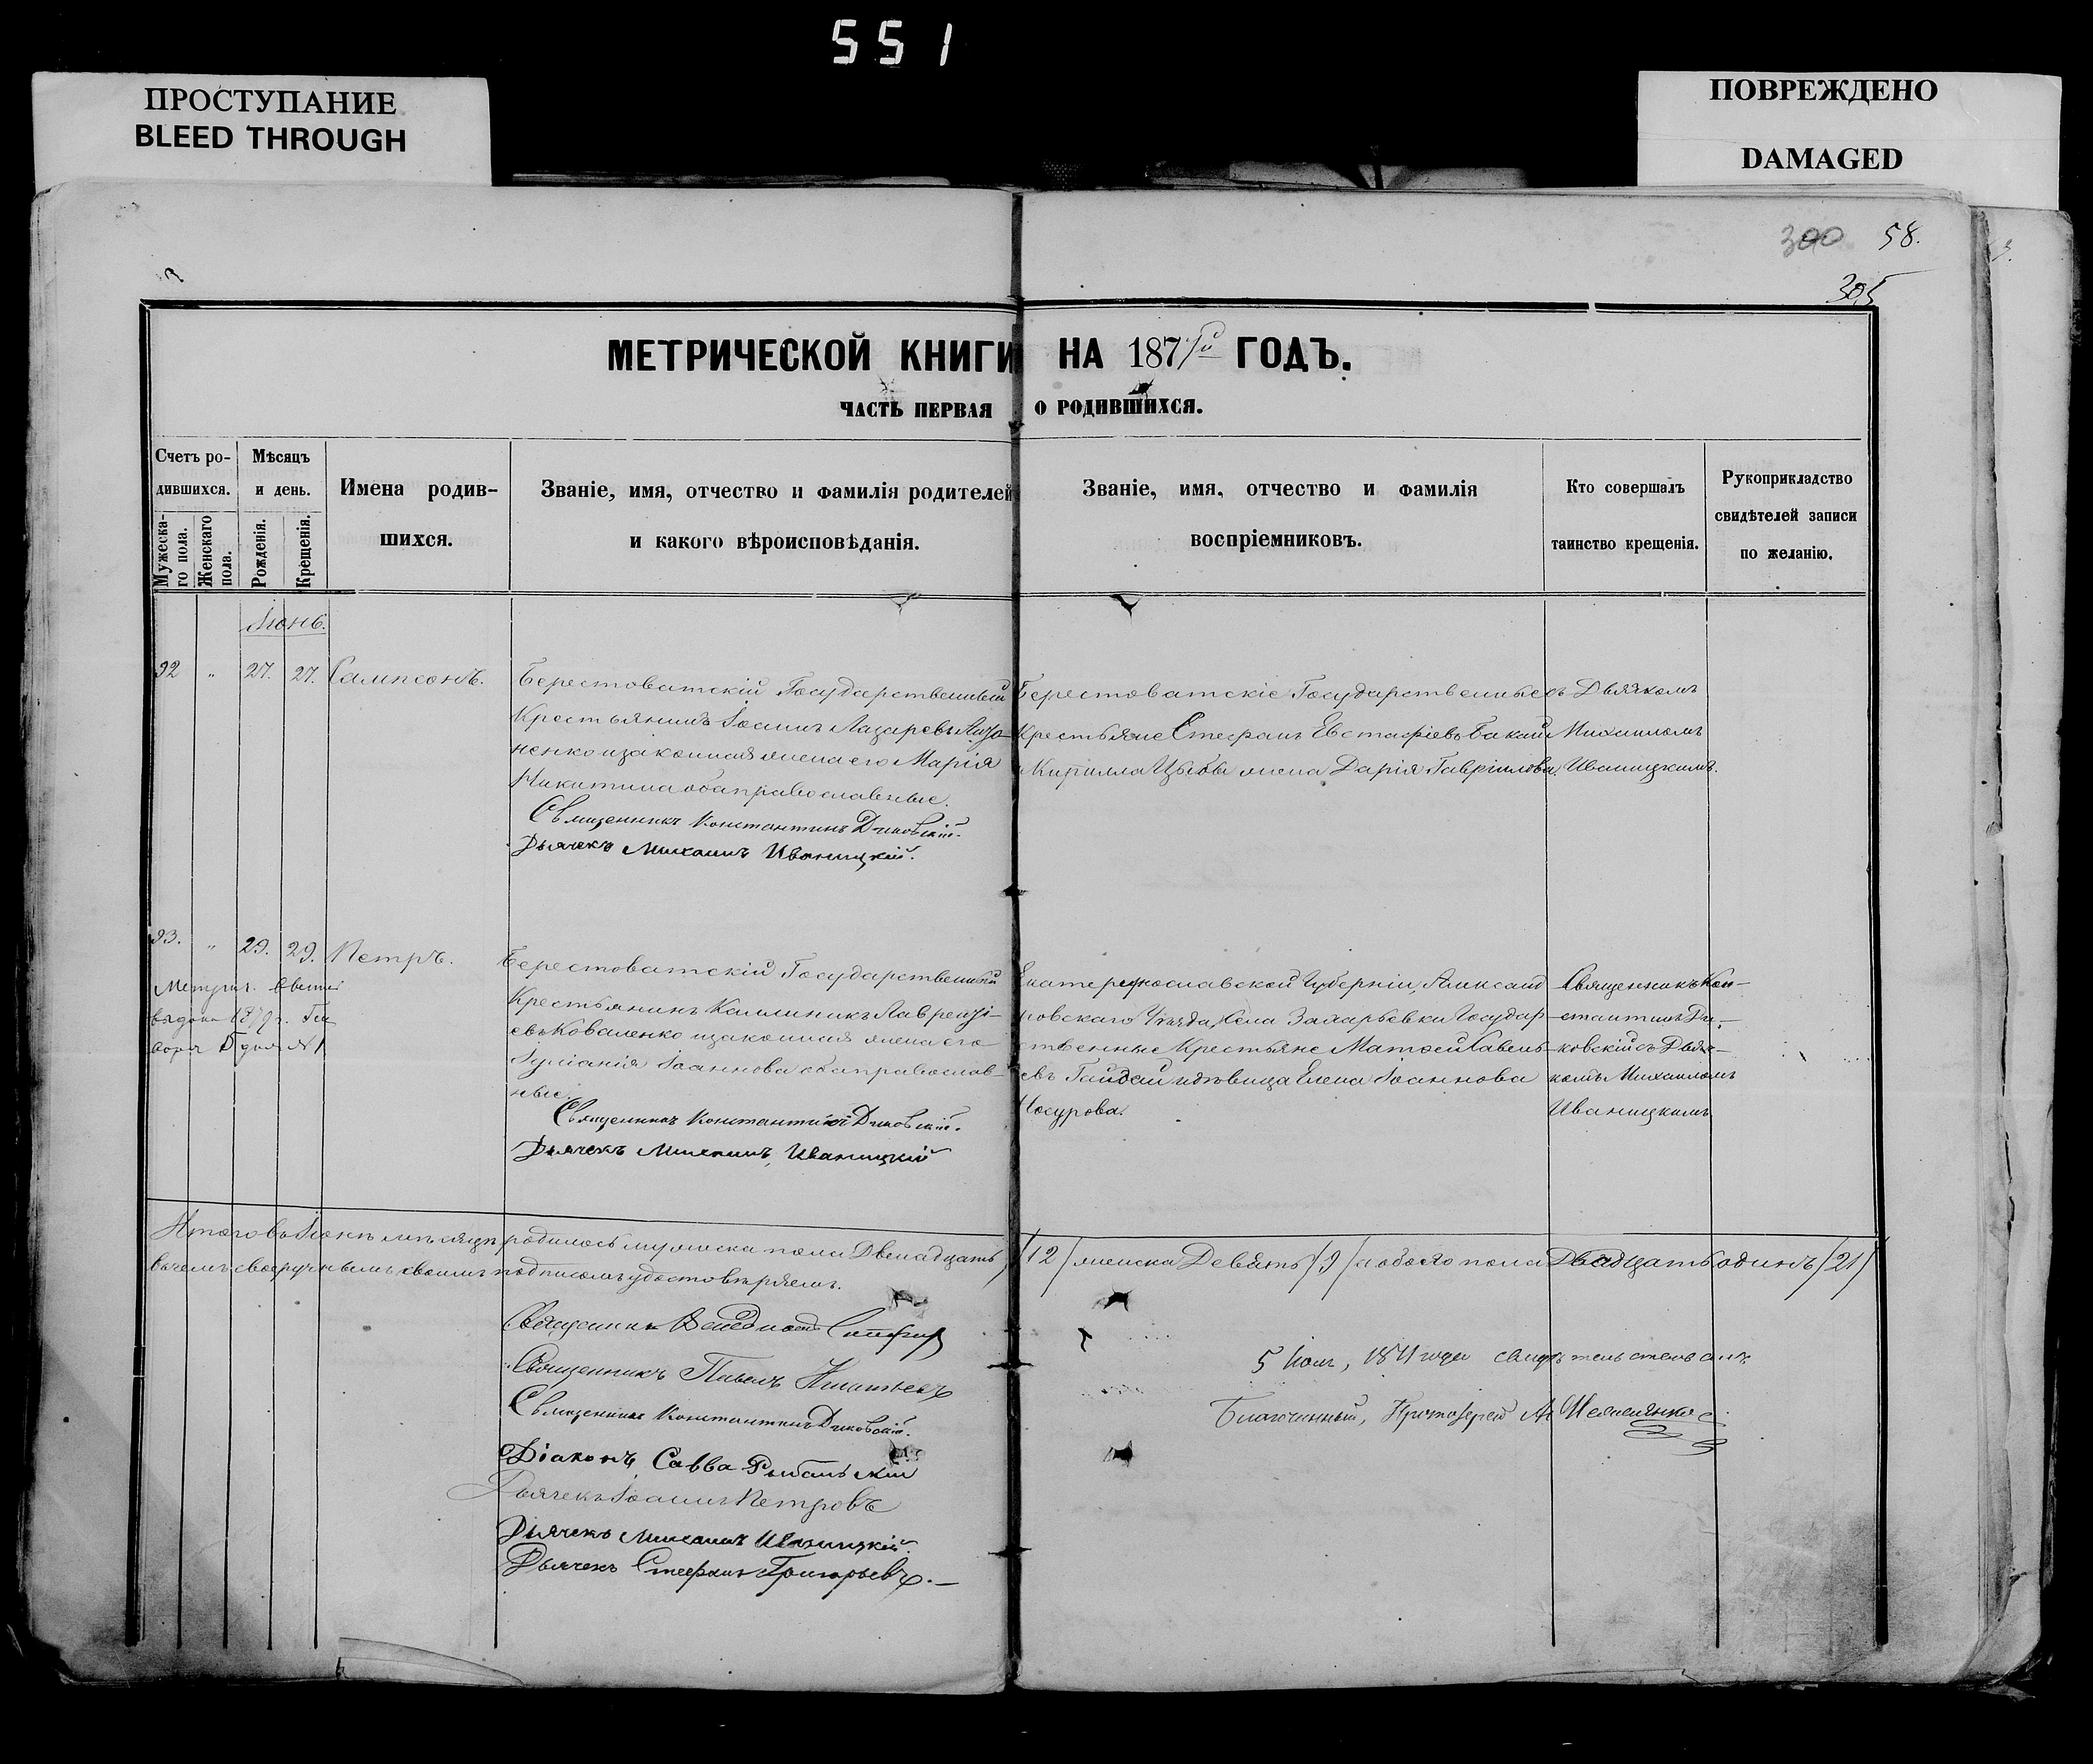 551
ПРОСТУПАНИЕ
BLEED THROUGH
ПОВРЕЖДЕНО
DAMAGED
300 58.
305
МЕТРИЧЕСКОЙ КНИГИ НА 1871й ГОДЪ.
ЧАСТЬ ПЕРВАЯ О РОДИВШИХСЯ.
Счетъ родившихся.
Мужескаго пола.
Женскаго пола.
Мѣсяцъ и день.
Рожденія.
Крещенія.
Имена родившихся.
Званіе, имя, отчество и фамилія родителей
и какого вѣроисповѣданія.
Званіе, имя, отчество и фамилія
воспріемниковъ.
Кто совершалъ
таинство крещенія.
Рукоприкладство
свидѣтелей записи
по желанію.
Іюнь.
92 " 27. 27. Сампсонъ.
Берестоватскій Государственный
Крестьянинъ Іоаннъ Лазаревъ
ненко изаконная жена его Марія
Никитина оба православные.
Священникъ Константинъ Диковскій.
Дьячекъ Михаилъ Иваницкій.
Берестоватскіе Государственные
Крестьяне Стефанъ Евстафіевъ Бакай
и Кирилла жена Дарія Гавріилова.
съ Дьячкомъ
Михаиломъ
Иваницкимъ.
93. " 29. 29. Петръ.
Метрич.
выдано 1879 г.
5 дня №1
Берестоватскій Государственный
Крестьянинъ Каллиникъ Лаврентіевъ Коваленко изаконная жена его
Іуліанія Іоаннова оба православные.
Священникъ Константинъ Диковскій.
Дьячекъ Михаилъ Иваницкій
Екатеринославской Губерніи, Александровскаго Уѣзда, Села Захарьевки Государственные Крестьяне Матѳей Савельевъ Гайдай идѣвица Елена Іоаннова
Священникъ Константинъ Диковскій съ Дьячкомъ Михаиломъ
Иваницкимъ
Итого въ Іюнѣ мѣсяцѣ родилось мужеска пола Двенадцать /12/ женска Девять /9/ а обоего пола Двадцать одинъ /21/
въ чемъ своеручнымъ своимъ подписомъ удостовѣряемъ.
Священникъ
Священникъ Павелъ
Священникъ Константинъ Диковскій.
Діаконъ Савва
Дьячекъ Іоаннъ Петровъ
Дьячекъ Михаилъ Иваницкій.
Дьячекъ Стефанъ Григорьевъ.
5 Іюля, 1871 года свидѣтельствовалъ
Благочинный, Протоіерей